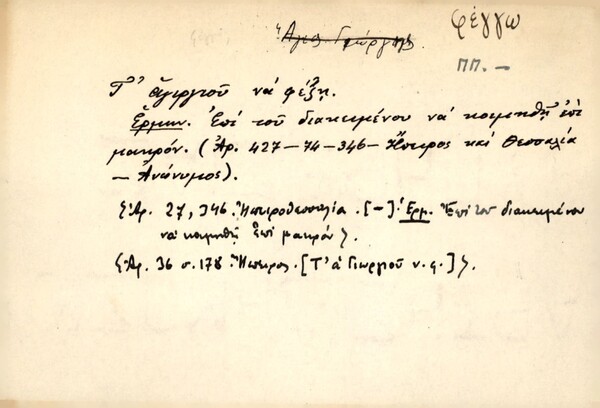 φέγγω
Ἅγιος Γεώργιος.
ΠΠ. —
Τ' ἁγιργιοῦ νά φέξῃ.
Ἑρμην. Ἐπί τοῦ διακειμένου νά κοιμηθῇ ἐπί
μακρόν. (Ἀρ. 427-74-346- Ἤπειρος καί Θεσσαλία
- Ἀνώνυμος).
⟨Ἀρ. 27, 346. Ἠπειροθεσσαλία. [-] Ἑρμ. Ἐπί τοῦ διακειμένου
νά κοιμηθῇ ἐπί μακρόν⟩.
⟨Ἀρ. 36 σ. 178 Ἤπειρος. [Τ' ἁ Γιωργιοῦ ν. φ.]⟩.